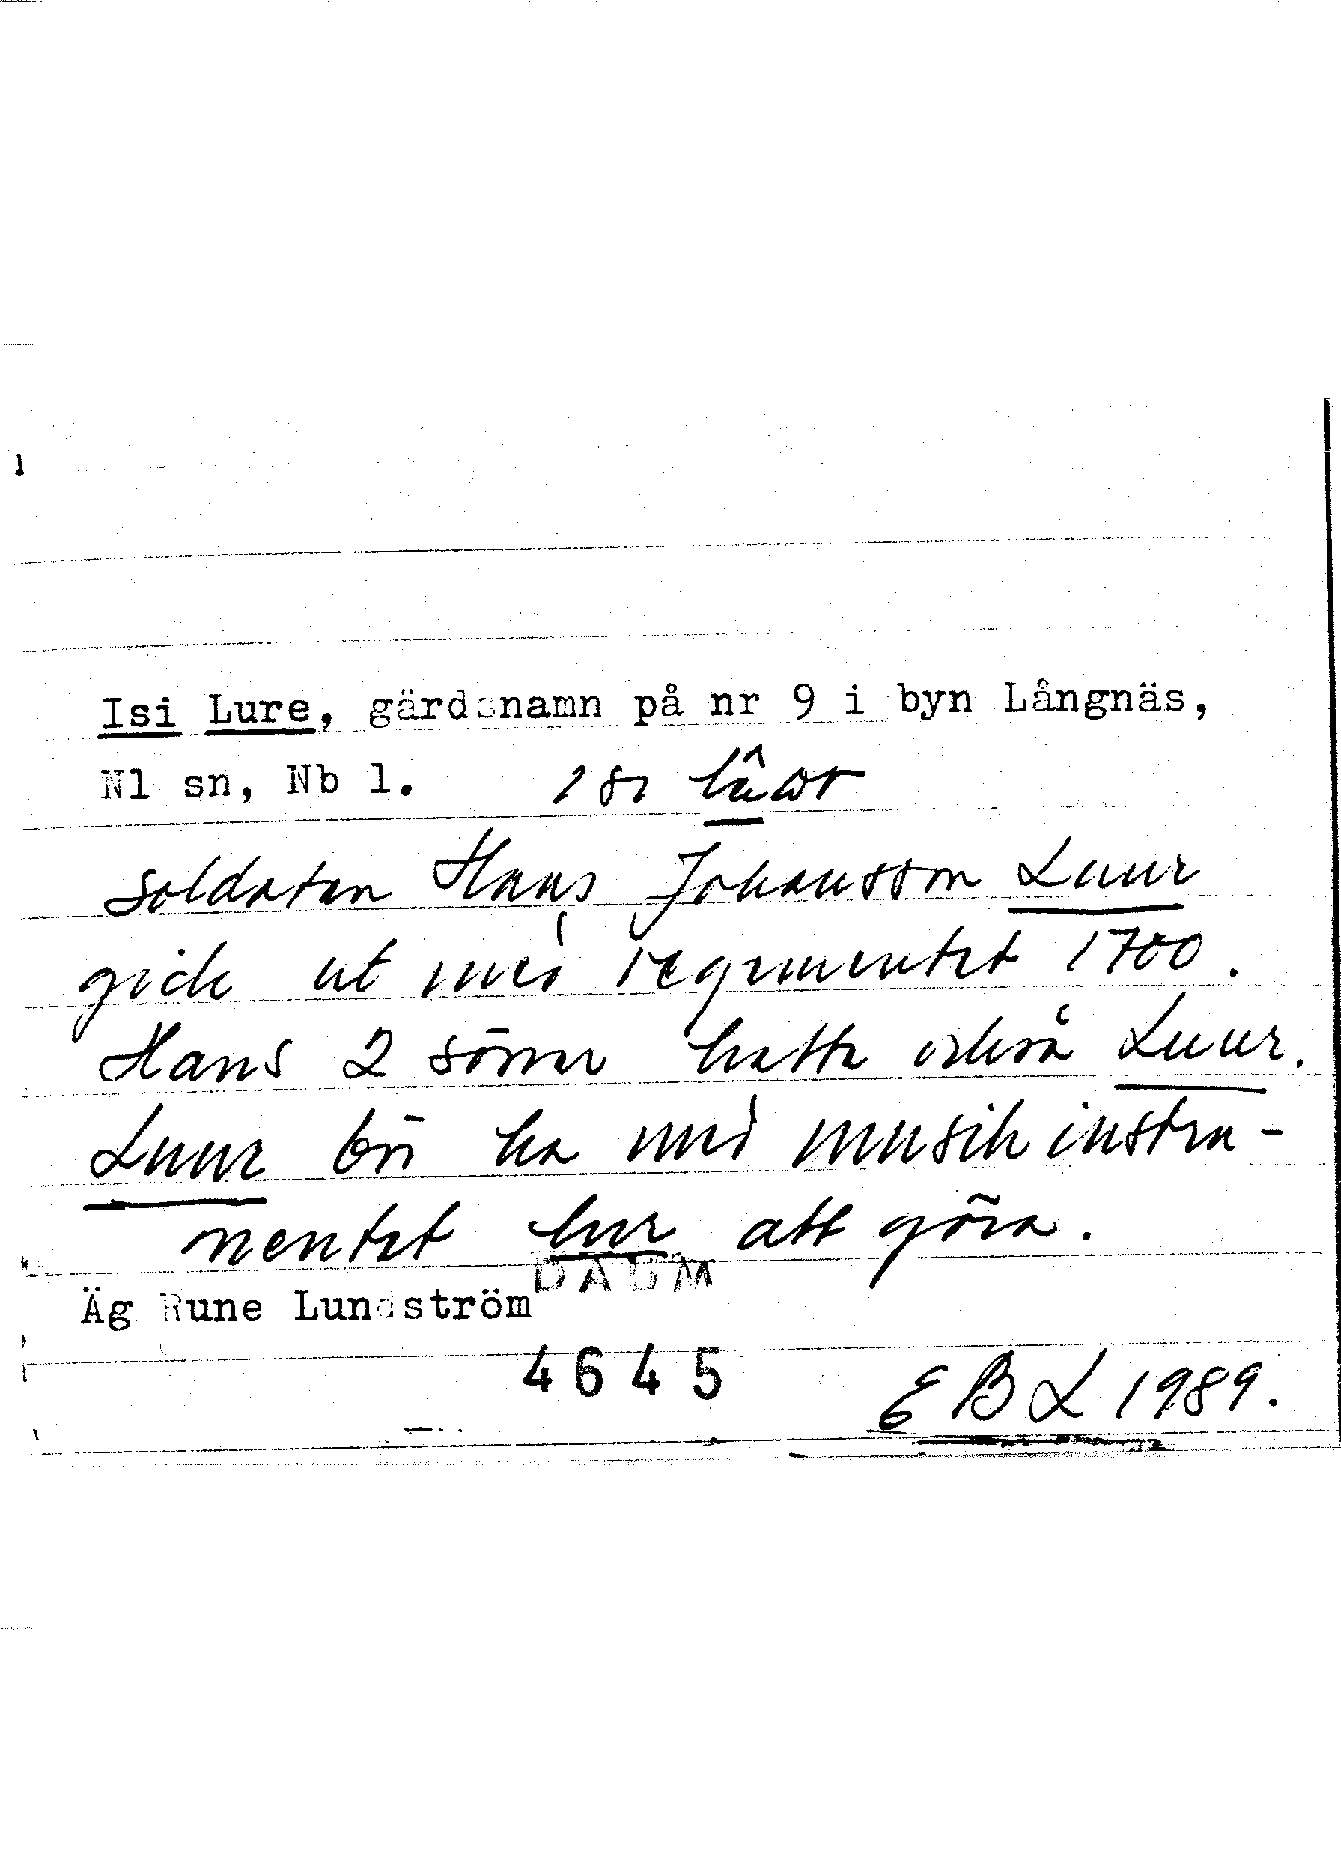 Isi Lure, gårdsnamn på nr 9 i byn Långnäs,
Nl sn, Nb l.
Soldaten Hans Johansson Luur
gick ut med regementet 1700.
Hans 2 söner hette också Luur.
Luur bör ha med musikinstru-
mentet lur att göra.
DAUM
Äg Rune Lundström
4645
EBL 1989.